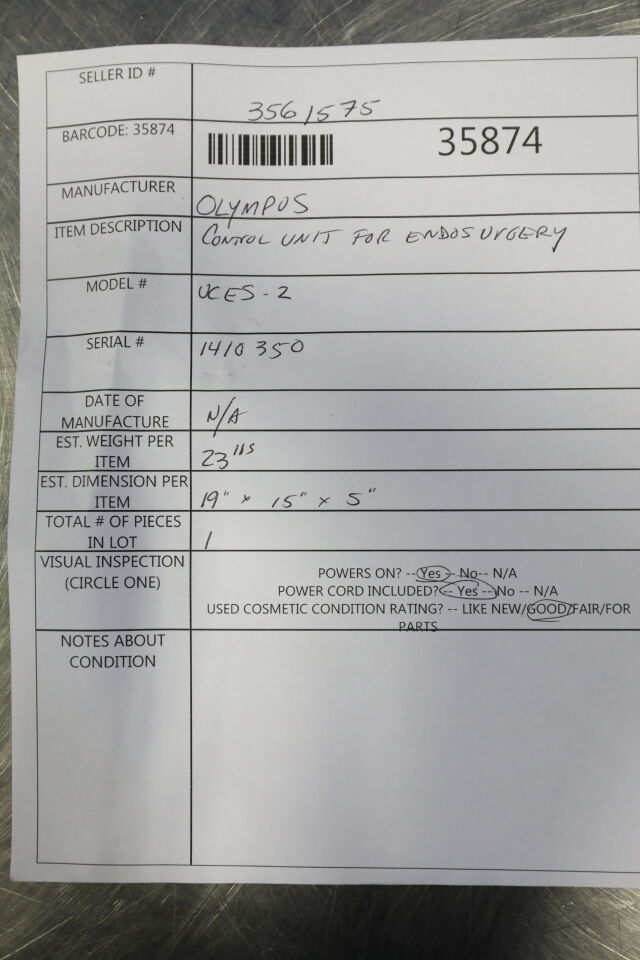 SELLER ID #
3561575
BARCODE: 35874
35874
MANUFACTURER
OLYMPUS
ITEM DESCRIPTION
CONTROL UNIT FOR ENDOSURGERY
MODEL #
UCES-2
SERIAL #
1410350
DATE OF
MANUFACTURE
N/A
EST. WEIGHT PER
ITEM
23 lbs
EST. DIMENSION PER
ITEM
19" x 15" x 5"
TOTAL # OF PIECES
IN LOT
1
VISUAL INSPECTION
(CIRCLE ONE)
POWERS ON? -- Yes -- No-- N/A
POWER CORD INCLUDED? -- Yes -- No -- N/A
USED COSMETIC CONDITION RATING? -- LIKE NEW/GOOD/FAIR/FOR
PARTS
NOTES ABOUT
CONDITION